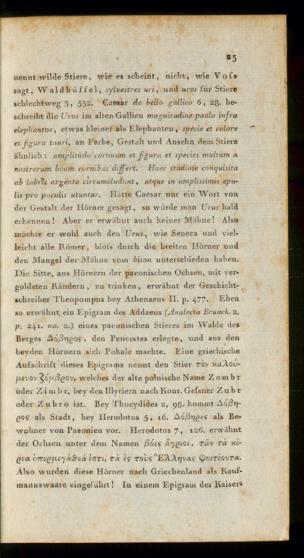 25
nennt wilde Stiere, wie es scheint, nicht, wie Vofs
sagt, Waldbüffel, sylvestres uri, und uros für Stiere
schlechtweg 3, 532. Caesar de bello gallico 6, 28. be-
schreibt die Uros im alten Gallien magnitudine paulo infra
elephantos, etwas kleiner als Elephanten, specie et colore
et figura tauri, an Farbe, Gestalt und Ansehn dem Stiere
ähnlich: amplitudo cornuum et figura et species multum a
nostrorum boum cornibus differt. Haec studiose conquisita
ab labris argento circumcludunt, atque in amplissimis epu-
lis pro poculis utuntur. Hätte Caesar nur ein Wort von
der Gestalt der Hörner gesagt, so würde man Urus bald
erkennen! Aber er erwähnt auch keiner Mähne! Also
mochte er wohl auch den Urus, wie Seneca und viel-
leicht alle Römer, blofs durch die breiten Hörner und
den Mangel der Mähne vom bison unterschieden haben.
Die Sitte, aus Hörnern der paeonischen Ochsen, mit ver-
goldeten Rändern, zu trinken, erwähnt der Geschicht-
schreiber Theopompus bey Athenaeus II. p. 477. Eben
so erwähnt ein Epigram des Addaeus (Analecta Brunck. 2.
p. 241. no. 2.) eines paeonischen Stieres im Walde des
Berges Δόβηρος, den Peucestes erlegte, und aus den
beyden Hörnern sich Pokale machte. Eine griechische
Aufschrift dieses Epigrams nennt den Stier τὸν καλού-
μενον ζόμβρον, welches der alte polnische Name Zomb r
oder Zimbr, bey den Illyriern nach Konr. Gefsner Zubr
oder Zubro ist. Bey Thucydides 2, 98. kommt Δόβη-
ρος als Stadt, bey Herodotus 5, 16. Δόβηρες als Be-
wohner von Paeonien vor. Herodotus 7, 126. erwähnt
der Ochsen unter dem Namen βόες ἄγριοι, τῶν τὰ κέ-
ρεα ὑπερμεγάθεά ἐστι, τὰ ἐς τοὺς Ἕλληνας φοιτέοντα.
Also wurden diese Hörner nach Griechenland als Kauf-
mannswaare eingeführt! In einem Epigram des Kaisers